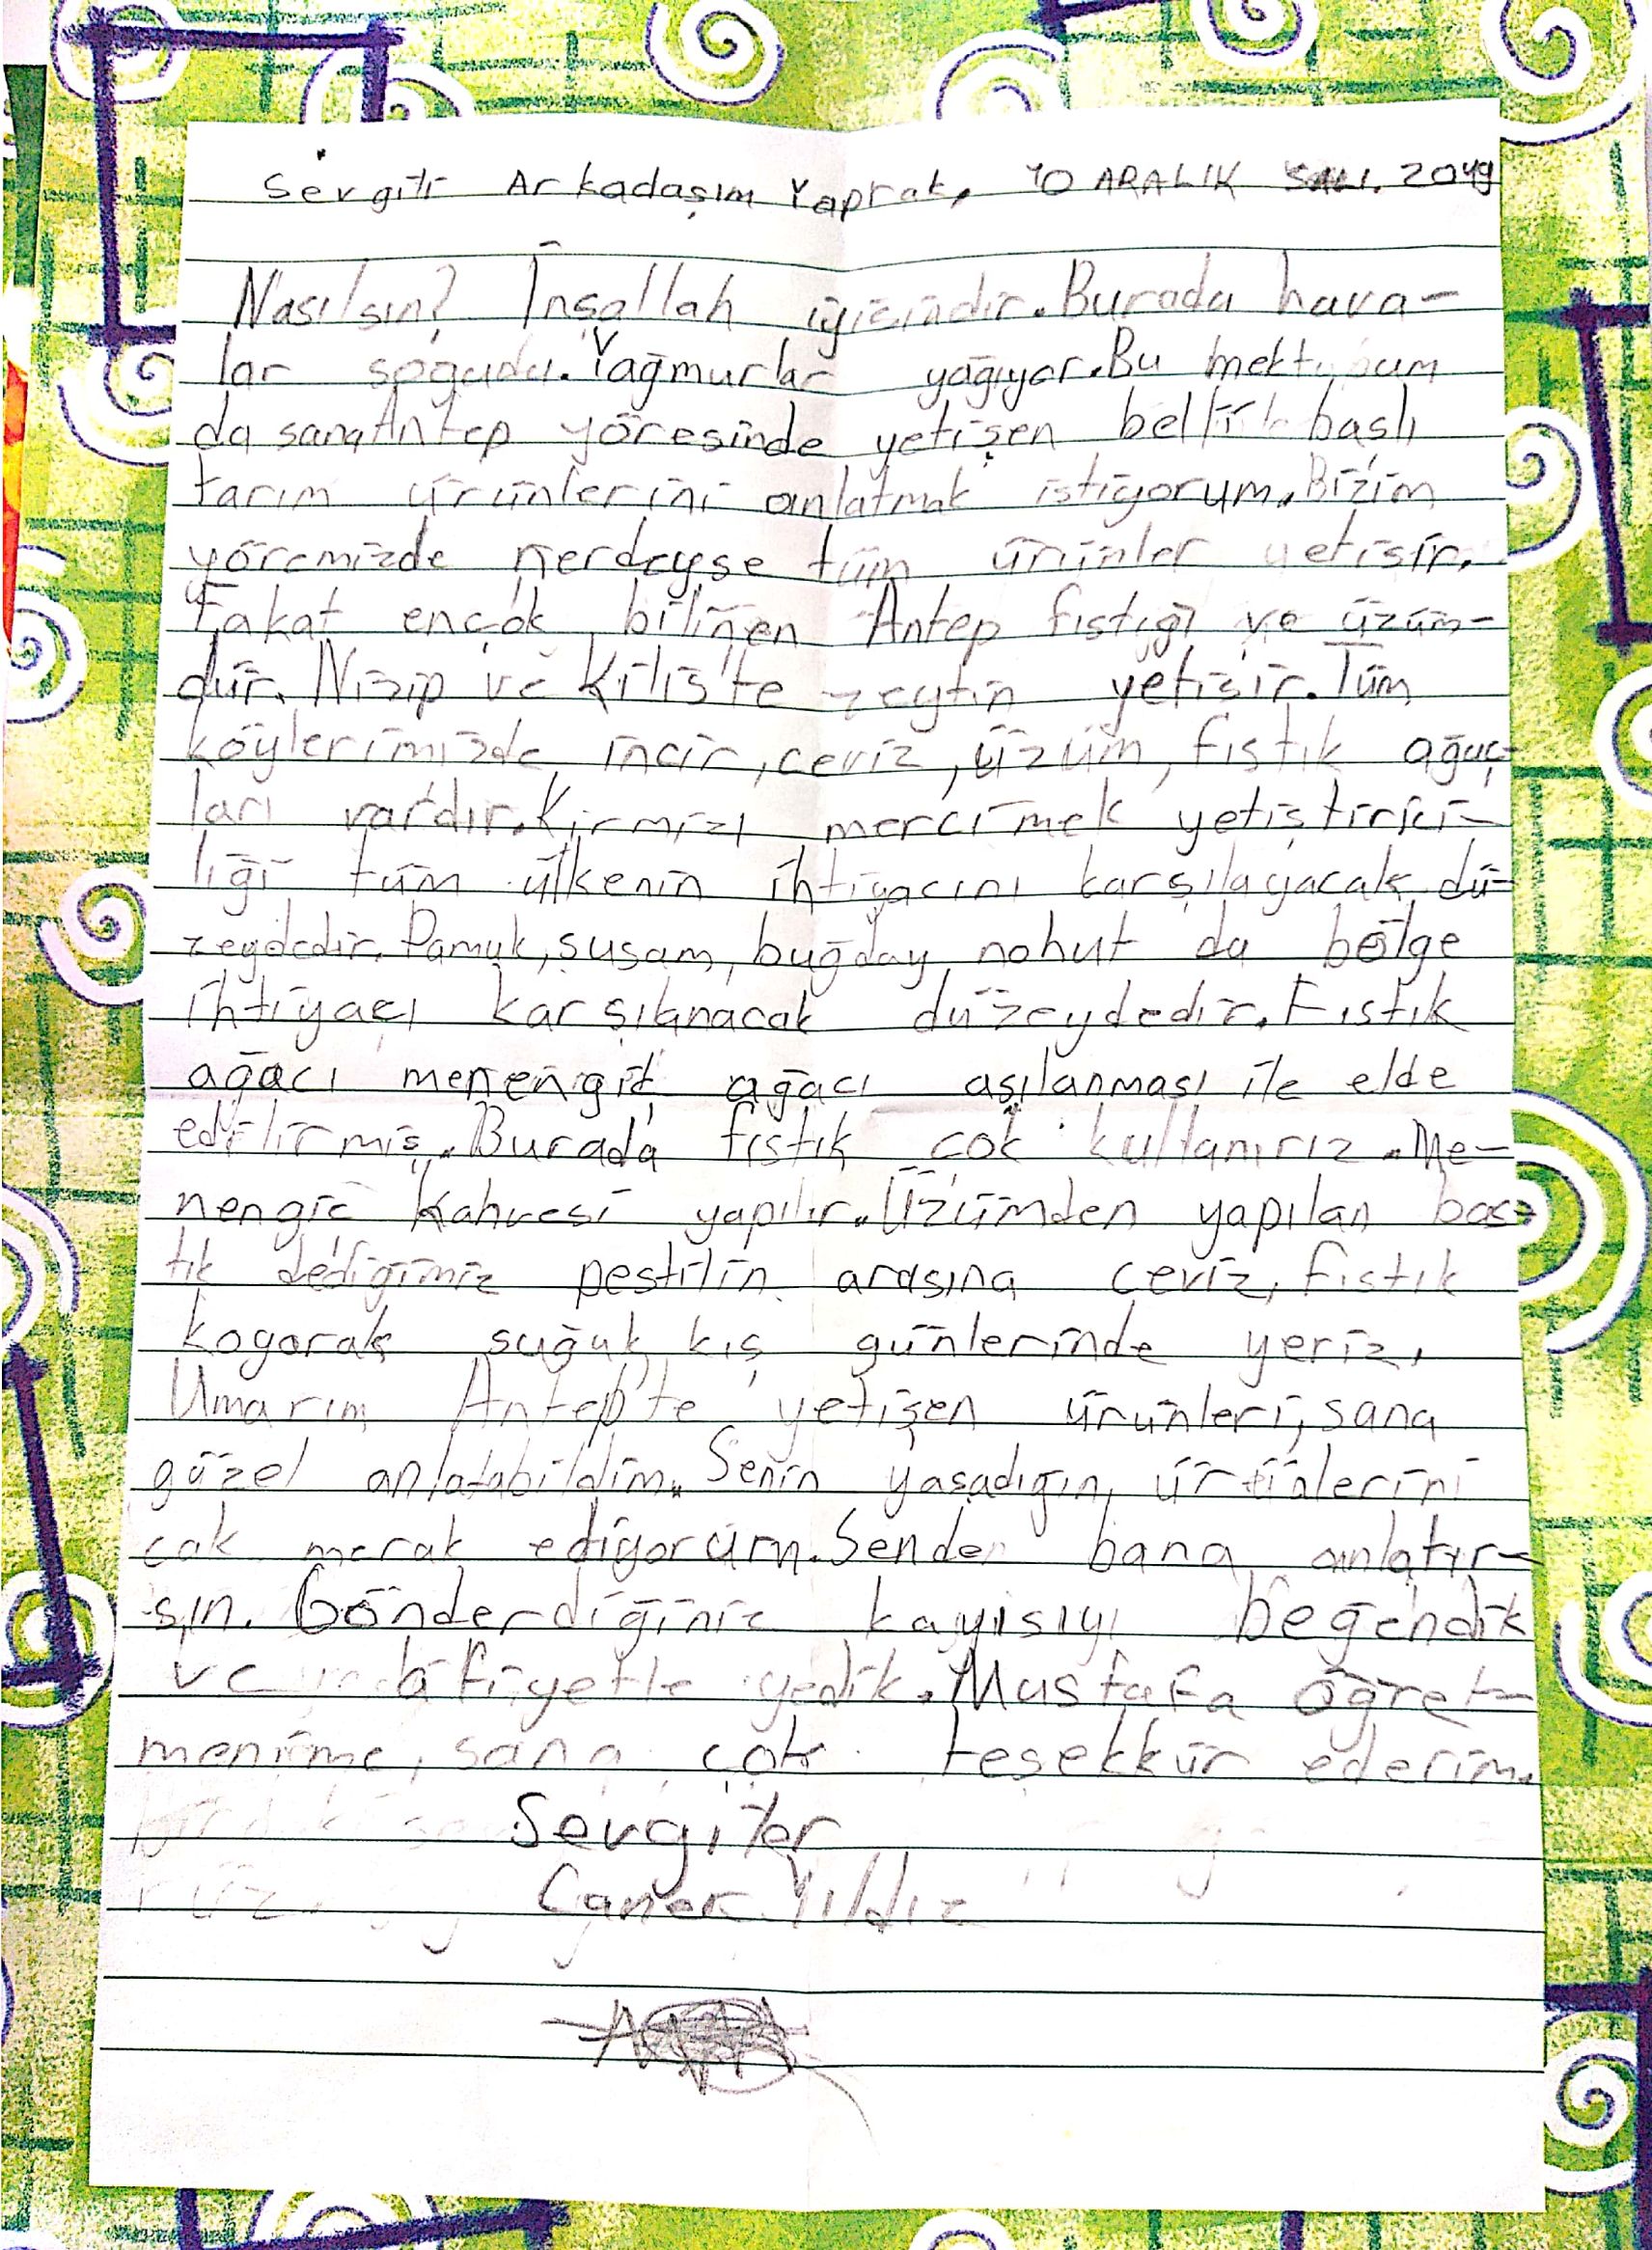 Sevgili Arkadaşım Yaprak, 10 ARALIK SALI. 2019
Nasılsın? İnşallah iyisindir. Burada hava-
lar soğudu. Yağmurlar yağıyor. Bu mektubum
da sana Antep yöresinde yetişen belli başlı
tarım ürünlerini anlatmak istiyorum. Bizim
yöremizde nerdeyse tüm ürünler yetişir.
Fakat ençok bilinen Antep fıstığı ve üzüm-
dür. Nizip ve Kilis'te zeytin yetişir. Tüm
köylerimizde incir, ceviz, üzüm, fıstık ağaç-
ları vardır. Kirmizı mercimek yetiştirici-
liği tüm ülkenin ihtiyacını karşılayacak dü-
zeydedir. Pamuk, susam, buğday, nohut da bölge
ihtiyacı karşılanacak düzeydedir. Fıstık
ağacı menengiç ağacı aşılanması ile elde
edilirmiş. Burada fıstık çok kullanırız. Me-
nengiç kahvesi yapılır. Üzümden yapılan bas-
tık dediğimiz pestilin arasına ceviz, fıstık
koyarak suğuk kış günlerinde yeriz.
Umarım Antep'te yetişen ürünleri, sana
güzel anlatabildim. Senin yaşadığın, ürünlerini
çok merak ediyorum. Sende bana anlatır-
sın. Gönderdiğiniz kayısıyı beğendik
ve afiyetle yedik. Mustafa öğret-
menime, sana çok teşekkür ederim.
Sevgiler
Caner Yıldız